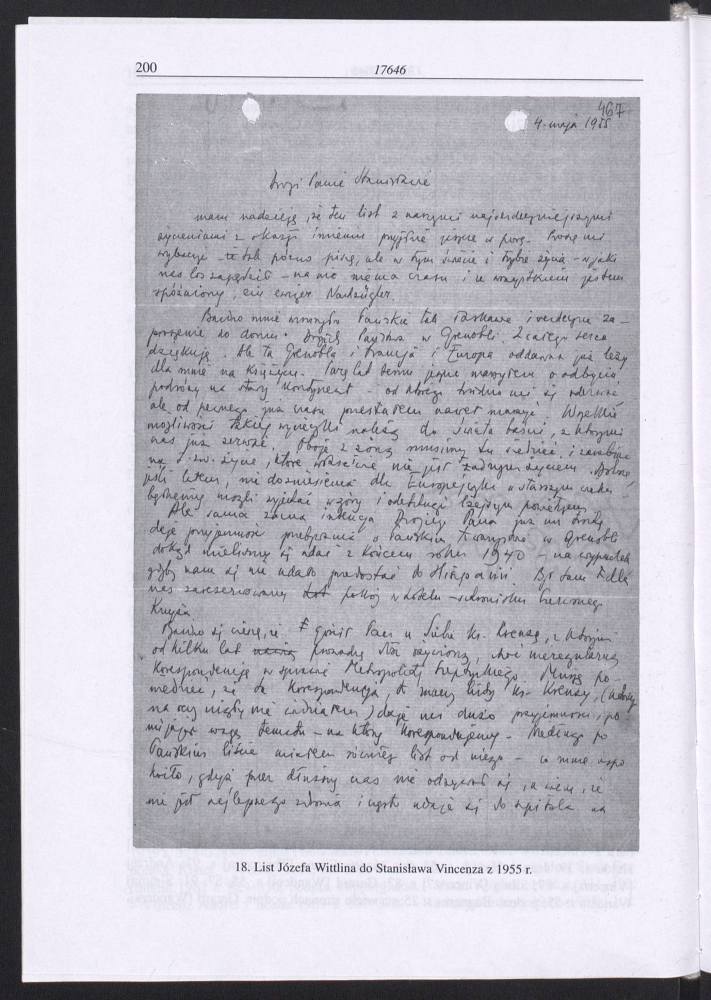 200
17646
467
4. maja 1955
Drogi Panie Stanisławie
mam nadzieję, że ten list z naszymi najserdeczniejszymi
życzeniami z okazji imienin przyjdzie jeszcze w porę. Proszę mi
wybaczyć – że tak późno piszę, ale w tym świecie i trybie życia – w jaki
nas los zapędził – na nic nie ma czasu i ze wszystkiem jestem
spóźniony, ein ewiger Nachzügler.
Bardzo mnie wzruszyło Pańskie tak łaskawe i serdeczne za-
proszenie do domu Drogich Państwa w Grenobli. Z całego serca
dziękuję. Ale ta Grenobla i Francja i Europa oddawna już leży
dla mnie na księżycu. Parę lat temu jeszcze marzyłem o odbyciu
podróży na stary kontynent – od którego trudno mi się oderwać
ale od pewnego już czasu przestałem nawet marzyć. Wszelkie
możliwości takiej wycieczki należą do świata baśni, z którymi
nas już Oboje z żoną musimy tu siedzieć i zarabiać
na t. zw. życie, które właściwie nie jest żadnym życiem.
jeśli nie dla Europejczyka w starszym wieku
będziemy mogli i powietrzem.
Ale sama zacna intencja Drogiego Pana już mi
przyjemność w Grenobli
dokąd mieliśmy się udać z końcem roku 1940 – na wypadek
gdyby nam się nie udało przedostać do Hiszpanii. Był tam dla
nas zarezerwowany pokój w hotelu – schronisku Czerwonego
Krzyża.
Bardzo się cieszę, że gościł Pan u Siebie ks. z którym
od kilku lat prowadzę dość ożywioną, choć nieregularną
korespondencję w sprawie Metropolity Szeptyckiego. Muszę po-
wiedzieć, że ta korespondencja, to znaczy listy ks. (którego
na oczy nigdy nie widziałem) daje mi dużo przyjemności, po-
mijając wagę tematu – na który korespondujemy. Niedługo po
Pańskim liście miałem również list od niego – co mnie uspo-
koiło, gdyż przez dłuższy czas nie odzywał się, a wiem, że
nie jest najlepszego zdrowia i często udaje się do szpitala na
18. List Józefa Wittlina do Stanisława Vincenza z 1955 r.